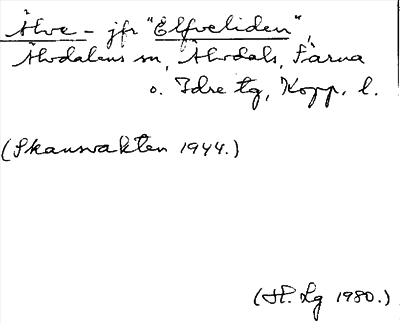 Älve - jfr "Elfveliden",
Älvdalens sn, Älvdals, Särna
o. Idre tg, Kopp. l.
(Skansvakten 1944.)
(H. Lg 1980.)